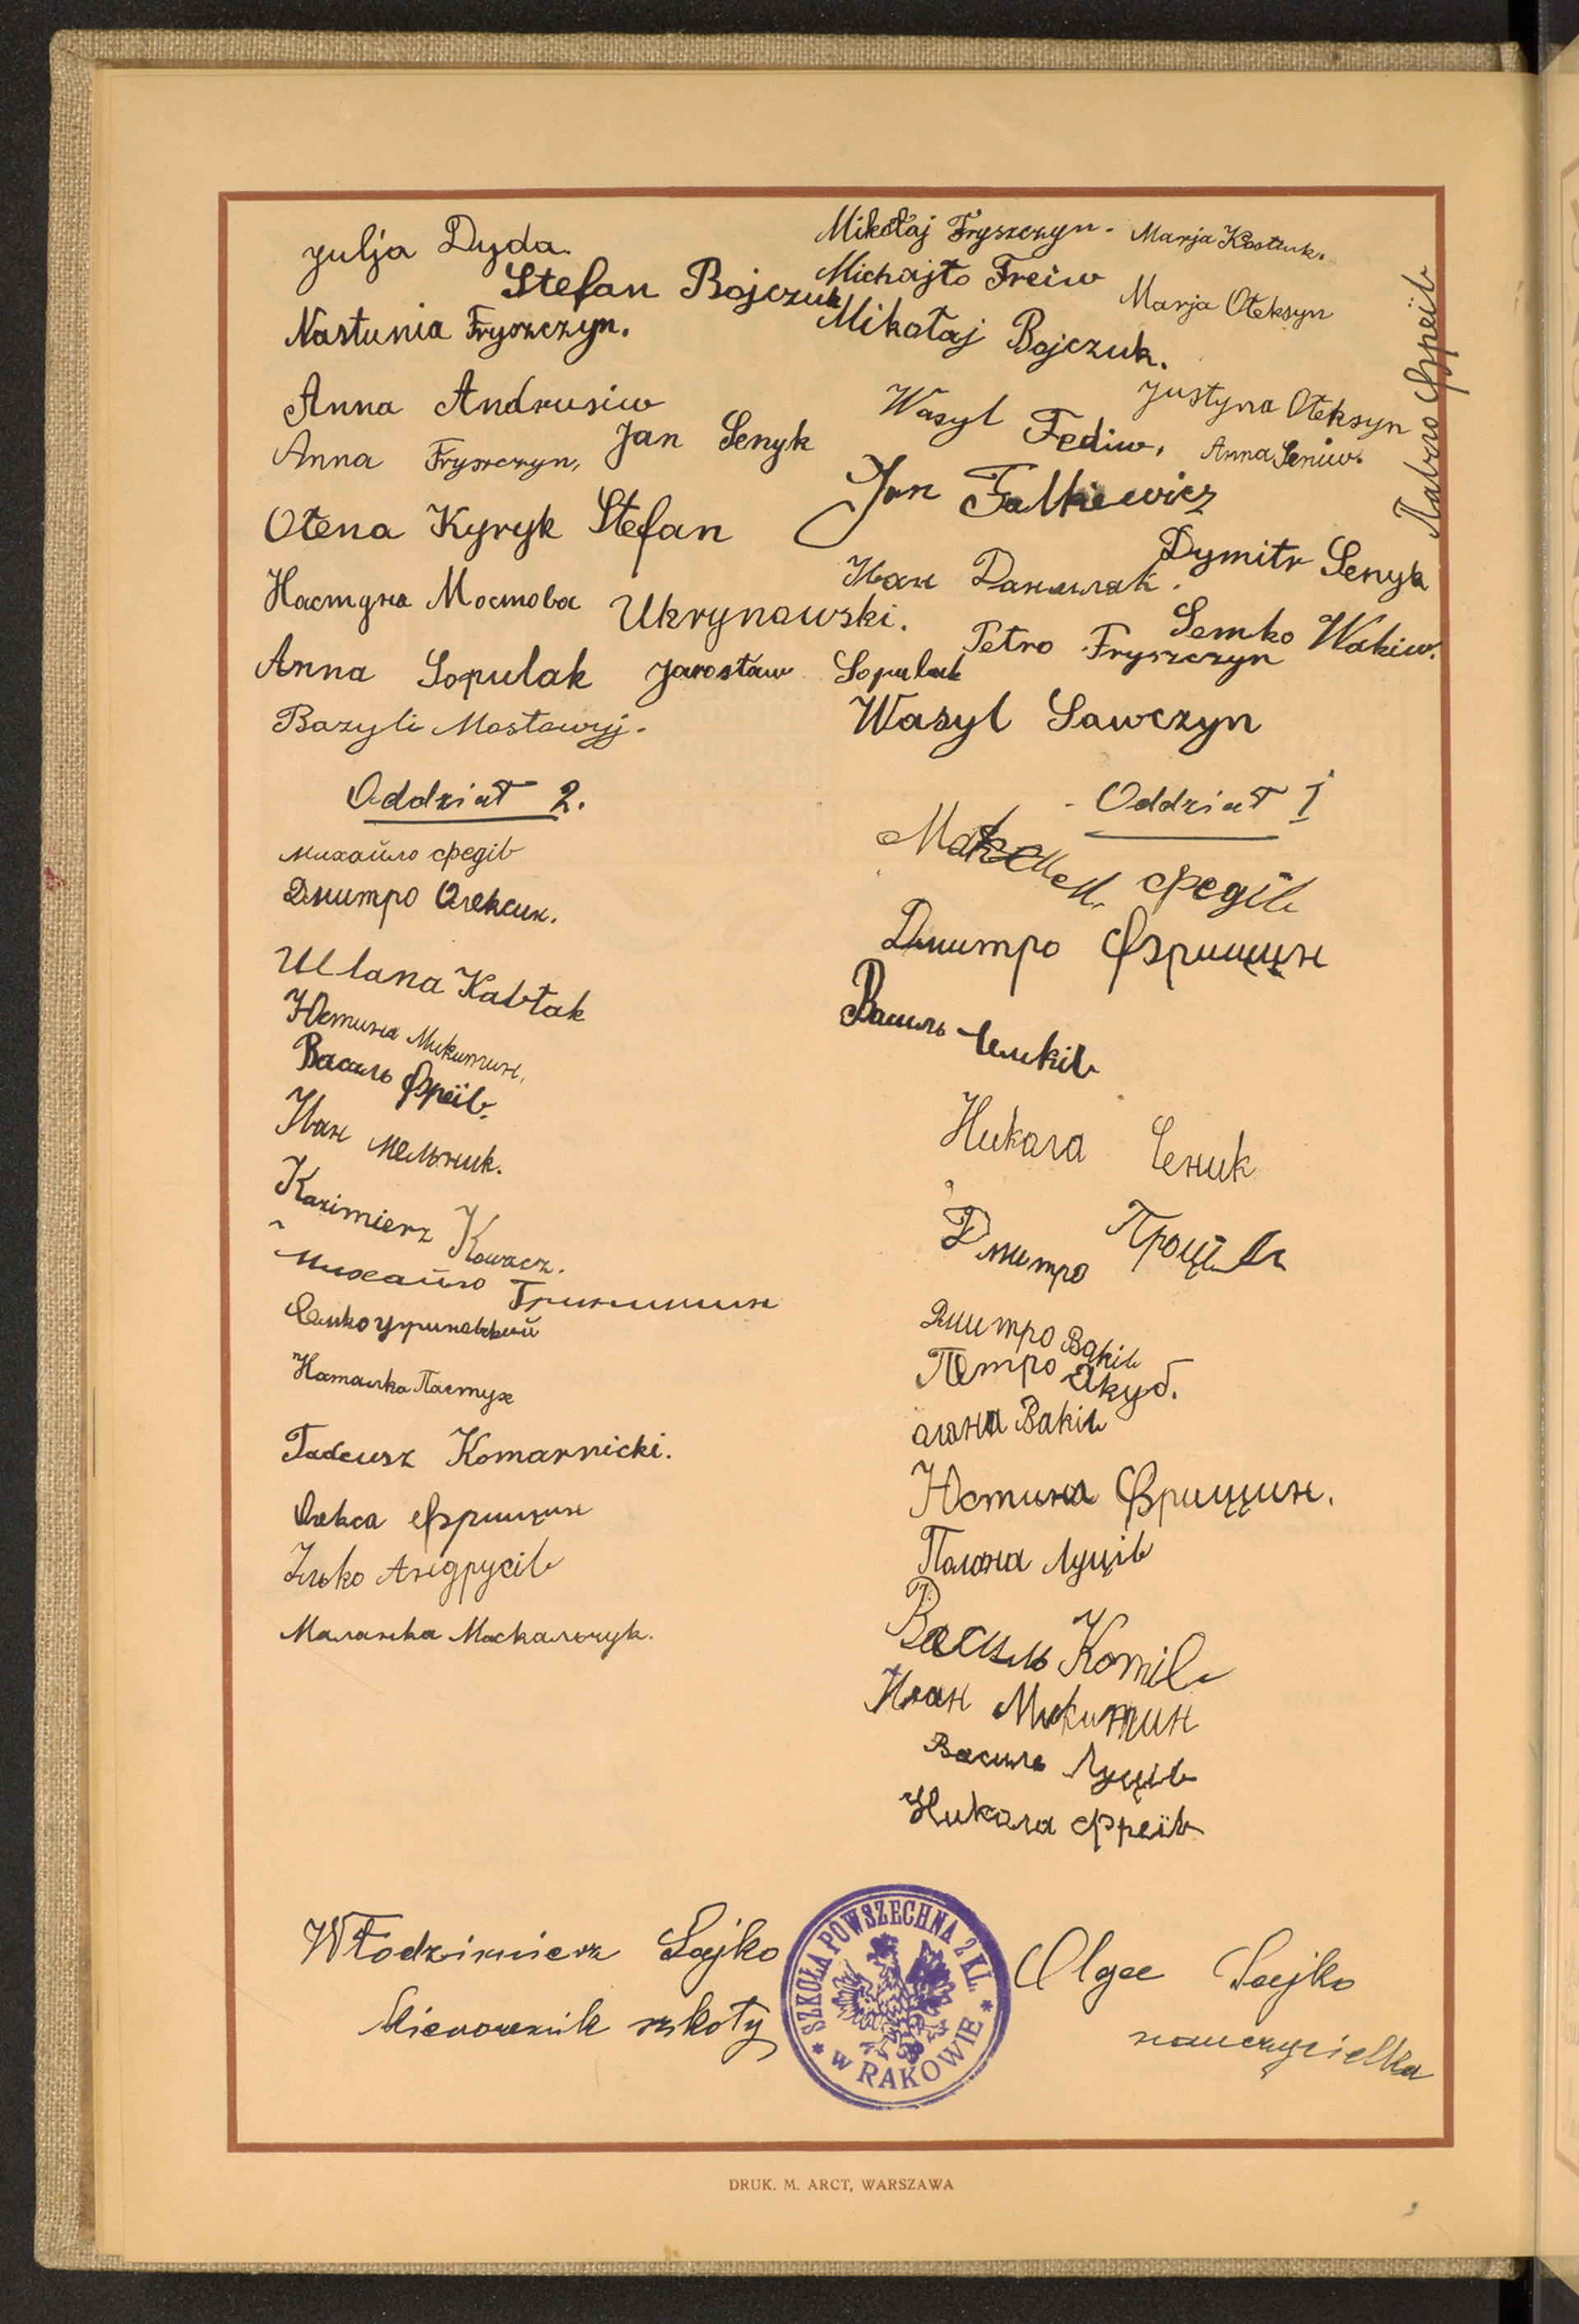 Julja Dyda.
Stefan Bojczuk
Nastunia Fryszczyn.
Anna Andrusiw
Anna Fryszczyn,
Jan Senyk
Ołena Kyryk
Stefan Ukrynowski.
Настуня Мостова
Anna Sopulak
Jarosław Sopulak
Bazyli Mostowyj.
Mikołaj Fryszczyn.
Marja Kostiuk.
Michajło Freiw
Marja Ołeksyn
Mikołaj Bojczuk.
Justyna Ołeksyn
Wasyl Fediw,
Anna Seniw.
Jan Falkiewicz
Павло Фреїв
Dymitr Senyk
Іван Даниляк.
Semko Wakiw.
Petro Fryszczyn
Wasyl Sawczyn
Oddział 2.
михайло Федів
Дмитро Олексин.
Ulana Kawłak
Юстина Микитин,
Василь Фреїв.
Іван мельник.
Kazimierz Kowacz.
михайло Гринишин
Семко Укриновский
Наталка Пастух
Tadeusz Komarnicki.
Олекса Фрищин
Ілько Андрусів
Маланка Маскальчук.
Oddział I
Максим Федів
Дмитро Фрищин
Василь Семків
Никола Сеник
Дмитро Проців
Дмитро Ваків
Петро Якуб.
олена Ваків
Юстина Фрищин.
Полана Луців
Василь Котів
Іван Микитин
Василь Луців
Никола Фреїв
Włodzimierz Sajko
Kierownik szkoły
SZKOŁA POWSZECHNA 2 KL.
* W RAKOWIE *
Olga Sajko
nauczycielka
DRUK. M. ARCT, WARSZAWA